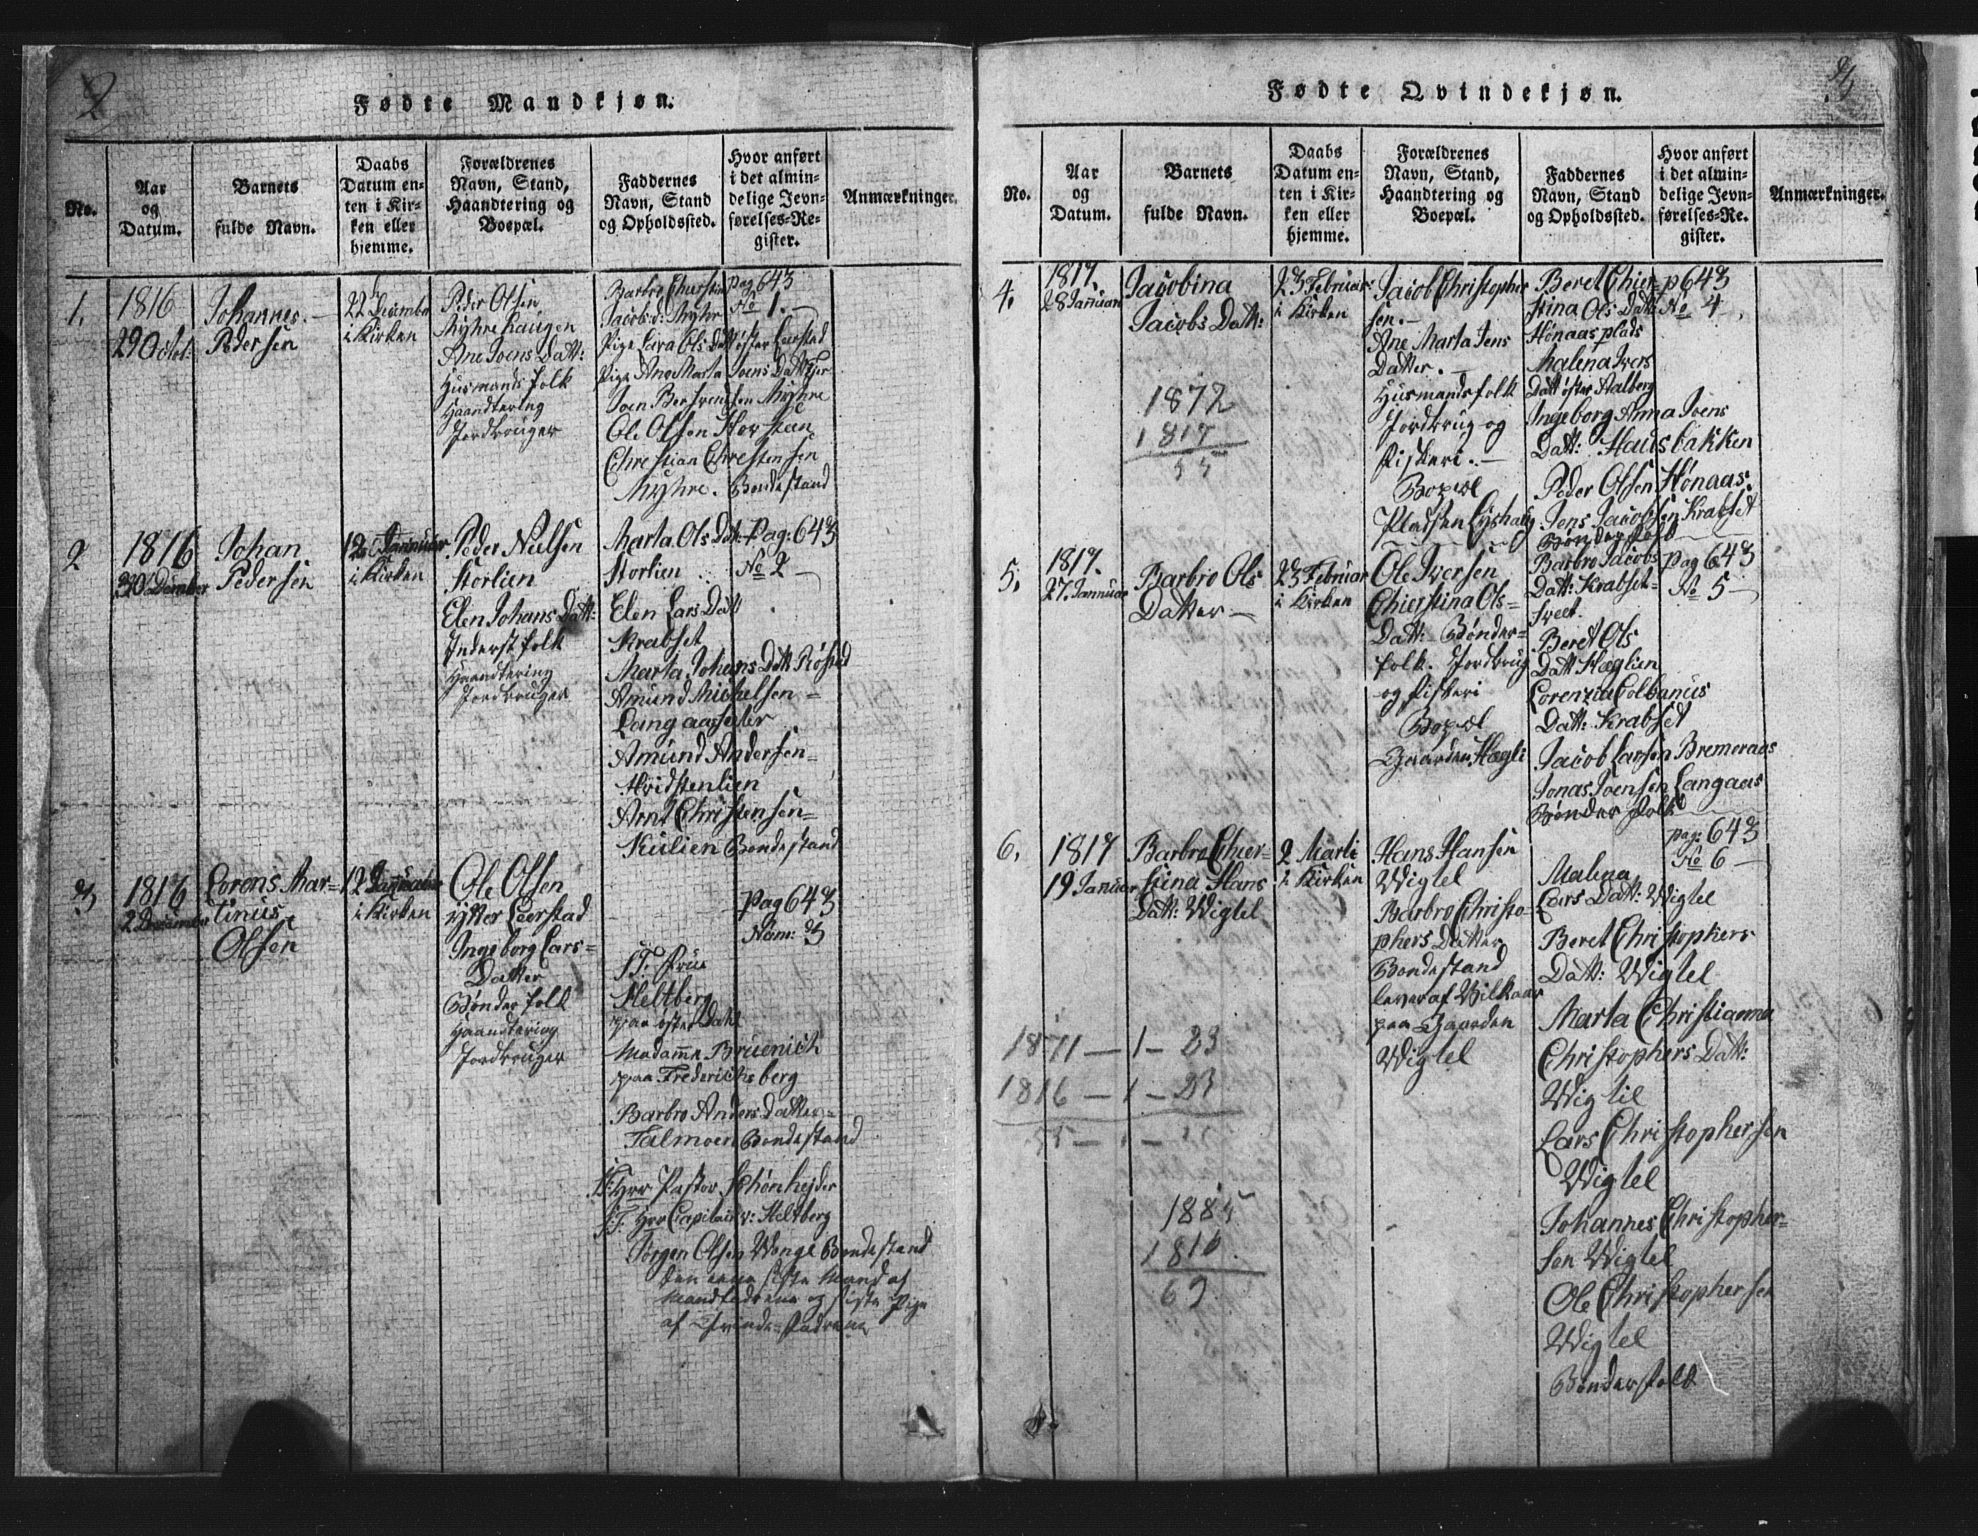 2
Fødte Mandkjøn.
No.
Aar
og
Datum.
Barnets
fulde Navn.
Daabs
Datum en-
ten i Kir-
ken eller
hjemme.
Forældrenes
Navn, Stand,
Haandtering og
Boepæl.
Faddernes
Navn, Stand
og Opholdssted.
Hvor anført
i det almin-
delige Jevn-
førelses-Re-
gister.
Anmærkninger.
1.
1816
29 Octob:
Johannes
Pedersen
22 Decembr
i Kirken
Peder Olsen
Myhrehaugen
Ane Joens Datt:
Huusmands folk
Haandtering
Jordbruger
Barbro Chierstin
Jacobsd: Myhr
Pige Sara Ols Datt øster Leerstad
Pige Ane Marta Joens Datt
Joen Berhendsen Myhre
Ole Olsen Horsteen
Christian Christensen
Myhre. Bondestand
pag 643
No 1.
2
1816
30 December
Johan
Pedersen
12 Januar
i Kirken
Peder Nielsen
Storlien
Elen Johans Datt:
Inderst folk
Haandtering
Jordbruger
Marta Ols Datt
Storlien
Elen Lars Datt
Krabset
Marta Johans Datt Røstad
Amund Michelsen
Langaassæter
Amund Andersen
Hvidstenlien
Arnt Christensen
Kulien Bondestand
Pag: 643
No 2
3
1816
2 December
Lorens Mar-
tinus
Olsen
12 Januar
i Kirken
Ole Olsen
ytter Leerstad
Ingeborg Lars-
Datter
Bønder folk
Haandtering
Jordbruger
Pag 643
Num: 3
S.T. Frue
Heltberg
paa øster Dahl
Madamme Bruenich
paa Frederichsberg
Barbro Anders Datter
Talmoen Bondestand
S.T. Hrr Pastor Schønhejder
S.T. Hrr Capitain v: Heltberg
Jørgen Olsen Wenge Bondestand
den sidste Mand af
og sidste Pige
af
Fødte Qvindekjøn.
3
No.
Aar
og
Datum.
Barnets
fulde Navn.
Daabs
Datum en-
ten i Kir-
ken eller
hjemme.
Forældrenes
Navn, Stand,
Haandtering og
Boepæl.
Faddernes
Navn, Stand
og Opholdssted.
Hvor anført
i det almin-
delige Jevn-
førelses-Re-
gister.
Anmærkninger.
4.
1817.
28 Januari
Jacobina
Jacobs Datt:
23 Februar
i Kirken
Jacob Christopher
sen.
Ane Marta Jens
Datter.
Huusmandsfolk
Jordbrug og
fiskeri.
Bopæl
Pladsen Lyshaug
Beret Chier-
stina Ols Datt:
Hønaas plads
Malena Ivers
Datt øster Aalberg
Ingeborg Anna Joens
Datt: Hausbakken
Peder Olsen Hønaas.
Jens Jacobsen Krabset
Bønder folk
p 643
No 4
1872
1817
55
5.
1817.
27. Januar
Barbro Ols
Datter
23 Februar
i Kirken
Ole Iversen
Chierstina Ols-
Datt: Bønder-
folk. Jordbrug
og fiskeri
Bopæl
Gaarden Hægli
Barbro Jacobs
Datt: Krabset-
tveet.
Beret Ols
Datt Hæglien
Lorenzia Colbanus
Datt: Krabset
Jacob Larsen Bremeraas
Jonas Joensen Langaas
Bønder folk
pag 643
No 5
6.
1817
19 Januar
Barbro Chier-
stina Hans
Datt: Wigtel
2 Marti
i Kirken
Hans Hansen
Wigtel
Barbro Christo-
phers Datter
Bondestand
lever af Vilkaar
paa Gaarden
Wigtel
Malena
Lars Datt: Wigtel
Beret Christophers
Datt: Wigtel
Marta Christianna
Christophers Datt:
Wigtel
Lars Christophersen
Wigtel
Johannes Christopher-
sen Wigtel
Ole Christophersen
Wigtel
Bønderfolk
pag: 643
No 6
1871 — 1 — 23
1816 — 1 — 23
55
1885
1816
69